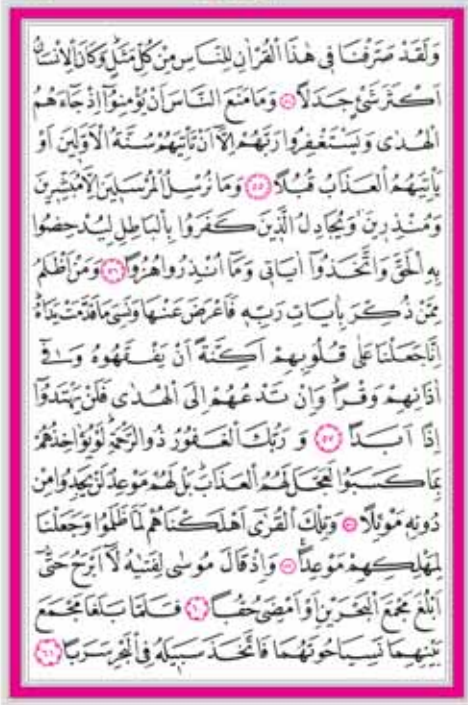 وَلَقَدْ صَرَّفْنَا فِي هٰذَا الْقُرْاٰنِ لِلنَّاسِ مِنْ كُلِّ مَثَلٍۜ وَكَانَ الْاِنْسَانُ
اَكْثَرَ شَيْءٍ جَدَلًا ﴿٥٤﴾ وَمَا مَنَعَ النَّاسَ اَنْ يُؤْمِنُٓوا اِذْ جَٓاءَهُمُ
الْهُدٰى وَيَسْتَغْفِرُوا رَبَّهُمْ اِلَّٓا اَنْ تَأْتِيَهُمْ سُنَّةُ الْاَوَّلٖينَ اَوْ
يَأْتِيَهُمُ الْعَذَابُ قُبُلًا ﴿٥٥﴾ وَمَا نُرْسِلُ الْمُرْسَلٖينَ اِلَّا مُبَشِّرٖينَ
وَمُنْذِرٖينَۚ وَيُجَادِلُ الَّذٖينَ كَفَرُوا بِالْبَاطِلِ لِيُدْحِضُوا
بِهِ الْحَقَّ وَاتَّخَذُٓوا اٰيَاتٖي وَمَٓا اُنْذِرُوا هُزُوًا ﴿٥٦﴾ وَمَنْ اَظْلَمُ
مِمَّنْ ذُكِّرَ بِاٰيَاتِ رَبِّهٖ فَاَعْرَضَ عَنْهَا وَنَسِيَ مَا قَدَّمَتْ يَدَاهُۜ
اِنَّا جَعَلْنَا عَلٰى قُلُوبِهِمْ اَكِنَّةً اَنْ يَفْقَهُوهُ وَفٖٓي
اٰذَانِهِمْ وَقْرًاۜ وَاِنْ تَدْعُهُمْ اِلَى الْهُدٰى فَلَنْ يَهْتَدُٓوا
اِذًا اَبَدًا ﴿٥٧﴾ وَرَبُّكَ الْغَفُورُ ذُو الرَّحْمَةِۜ لَوْ يُؤَاخِذُهُمْ
بِمَا كَسَبُوا لَعَجَّلَ لَهُمُ الْعَذَابَۜ بَلْ لَهُمْ مَوْعِدٌ لَنْ يَجِدُوا مِنْ
دُونِهٖ مَوْئِلًا ﴿٥٨﴾ وَتِلْكَ الْقُرٰٓى اَهْلَكْنَاهُمْ لَمَّا ظَلَمُوا وَجَعَلْنَا
لِمَهْلِكِهِمْ مَوْعِدًا ﴿٥٩﴾ وَاِذْ قَالَ مُوسٰى لِفَتٰيهُ لَٓا اَبْرَحُ حَتّٰٓى
اَبْلُغَ مَجْمَعَ الْبَحْرَيْنِ اَوْ اَمْضِيَ حُقُبًا ﴿٦٠﴾ فَلَمَّا بَلَغَا مَجْمَعَ
بَيْنِهِمَا نَسِيَا حُوتَهُمَا فَاتَّخَذَ سَبٖيلَهُ فِي الْبَحْرِ سَرَبًا ﴿٦١﴾